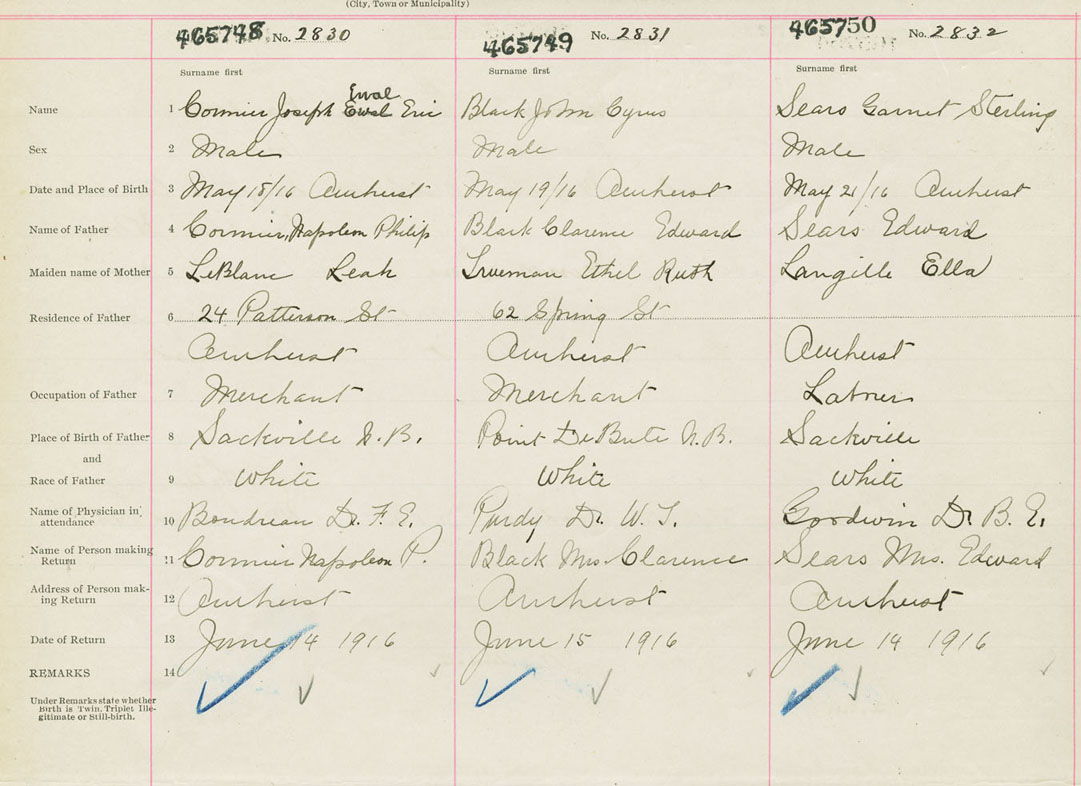 (City, Town or Municipality)
465748 No. 2830 465749 No. 2831 465750 No. 2832
Surname first Surname first Surname first
Ewal
Name 1 Cormier Joseph Ewal Eric Black John Cyrus Sears Garnet Sterling
Sex 2 Male Male Male
Date and Place of Birth 3 May 18/16 Amherst May 19/16 Amherst May 21/16 Amherst
Name of Father 4 Cormier, Napoleon Philip Black Clarence Edward Sears Edward
Maiden name of Mother 5 LeBlanc Leah Trueman Ethel Ruth Langille Ella
Residence of Father 6 24 Patterson St 62 Spring St
Amherst Amherst Amherst
Occupation of Father 7 Merchant Merchant Labrer
Place of Birth of Father 8 Sackville N.B. Point De Bute N.B. Sackville
and
Race of Father 9 White White White
Name of Physician in
attendance 10 Boudreau Dr. F. E. Purdy Dr. W. T. Goodwin Dr. B. E.
Name of Person making
Return 11 Cormier Napoleon P. Black Mrs. Clarence Sears Mrs. Edward
Address of Person mak-
ing Return 12 Amherst Amherst Amherst
Date of Return 13 June 14 1916 June 15 1916 June 14 1916
REMARKS 14
Under Remarks state whether
Birth is Twin, Triplet Ille-
gitimate or Still-birth.